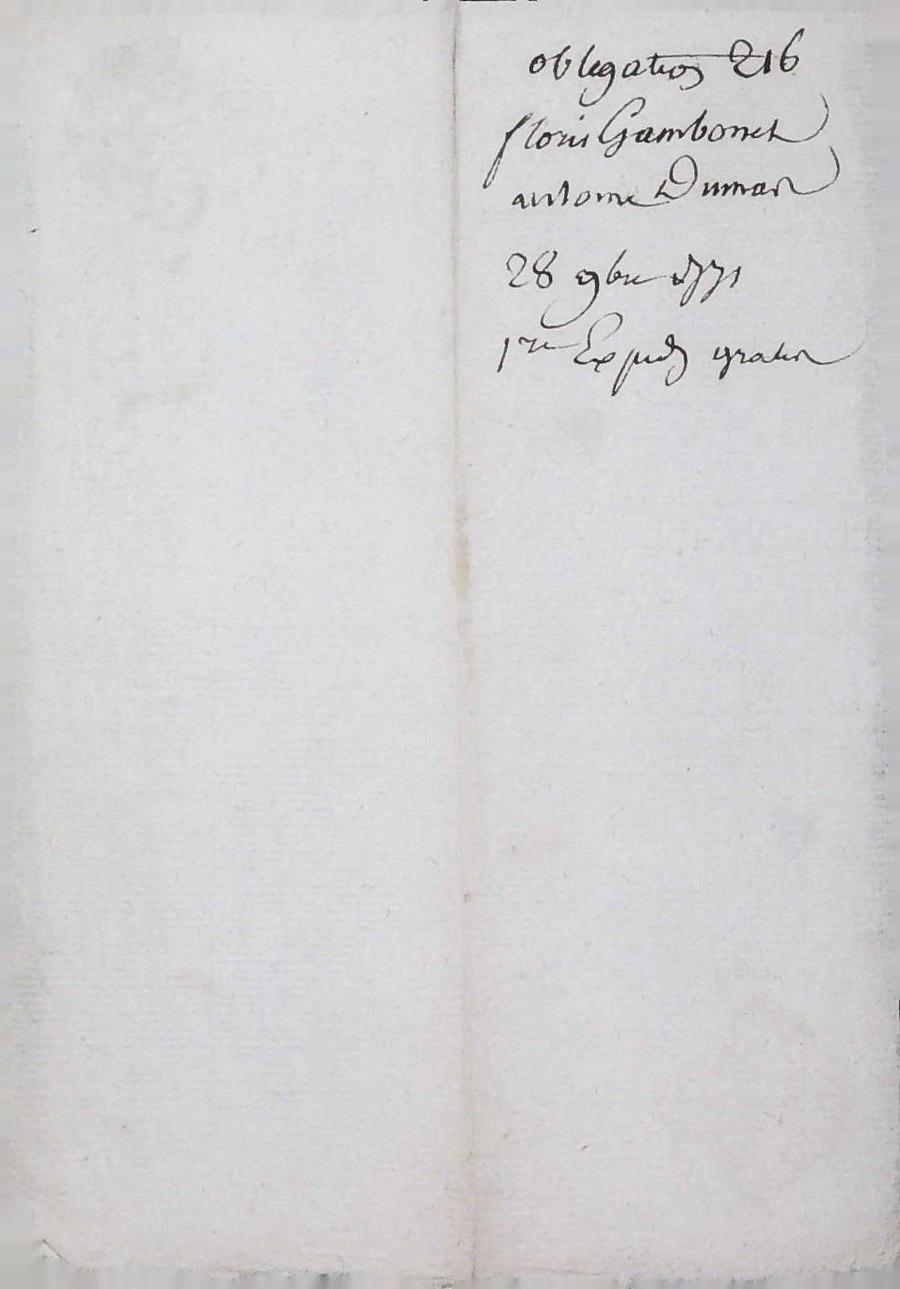 obligation 216
floris Gambonet
antoine Dumas
28 9bre 1771
1re Exped gratis